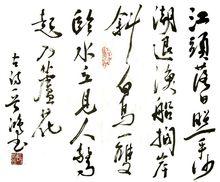 江頭落日照平沙
潮退渔船搁岸
斜白鳥一雙
临水立見人驚
起入蘆花
古诗